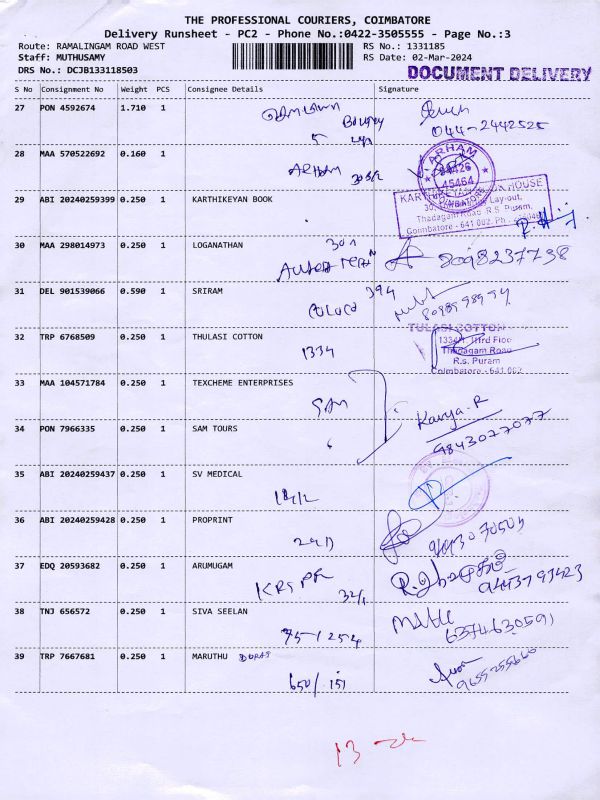 THE PROFESSIONAL COURIERS, COIMBATORE
Delivery Runsheet - PC2 - Phone No.:0422-3505555 - Page No.:3
Route: RAMALINGAM ROAD WEST
RS No.: 1331185
Staff: MUTHUSAMY
RS Date: 02-Mar-2024
DRS No.: DCJB133118503
DOCUMENT DELIVERY
S No Consignment No Weight PCS Consignee Details Signature
27 PON 4592674 1.710 1
044-2442525
28 MAA 570522692 0.160 1
ARHAM
ARHAM
45464
29 ABI 20240259399 0.250 1 KARTHIKEYAN BOOK
HOUSE
Lay-out,
Thadagam Road R.S. Puram,
Coimbatore - 641 002. Ph
30 MAA 298014973 0.250 1 LOGANATHAN
301
8098237738
31 DEL 901539066 0.590 1 SRIRAM
394
32 TRP 6768509 0.250 1 THULASI COTTON
1334
TULASI COTTON
Thadagam Road
R.s. Puram
Coimbatore - 641 002
33 MAA 104571784 0.250 1 TEXCHEME ENTERPRISES
SAM
Kavya.R
9843077077
34 PON 7966335 0.250 1 SAM TOURS
35 ABI 20240259437 0.250 1 SV MEDICAL
36 ABI 20240259428 0.250 1 PROPRINT
37 EDQ 20593682 0.250 1 ARUMUGAM
KRS
32/1
9443793423
38 TNJ 656572 0.250 1 SIVA SEELAN
75-1254
6374630591
39 TRP 7667681 0.250 1 MARUTHU
650/151
9655255660
13